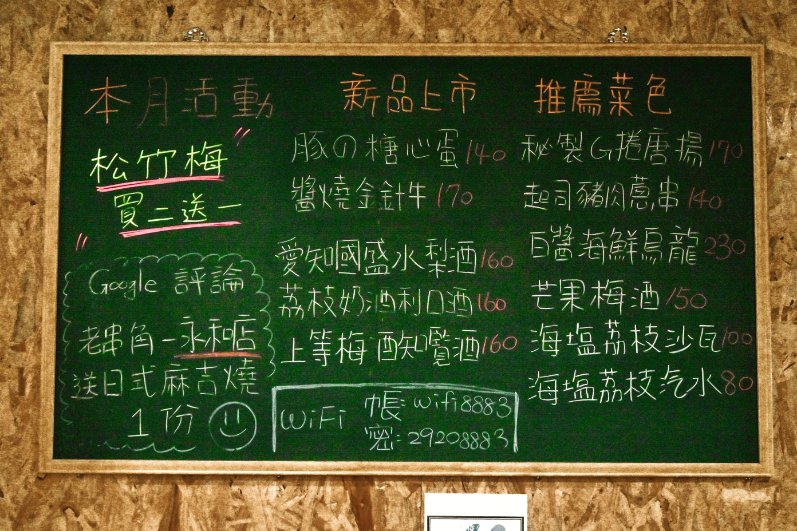 本月活動
"松竹梅
買二送一"
Google 評論
老串角-永和店
送日式麻吉燒
1份
新品上市
豚の糖心蛋 140
醬燒金針牛 170
愛知國盛水梨酒 160
荔枝奶酒利口酒 160
上等梅酒知覽酒 160
WiFi 帳: wifi8883
密: 29208883
推薦菜色
秘製G捲唐揚 170
起司豬肉蔥串 140
白醬海鮮烏龍 230
芒果梅酒 150
海塩荔枝沙瓦 100
海塩荔枝汽水 80